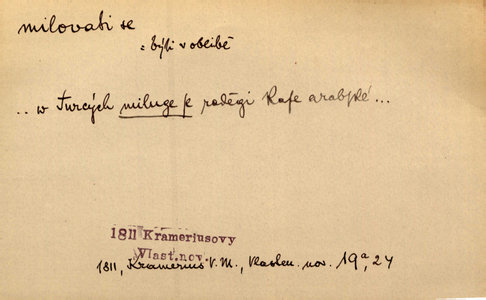 milovati se
= býti v oblibě
.. w Turcých miluge se raděgi Kafe arabské ...
1811 Krameriusovy
Vlast.nov.
1811, Kramerius V. M., Vlasten. nov. 19a, 24